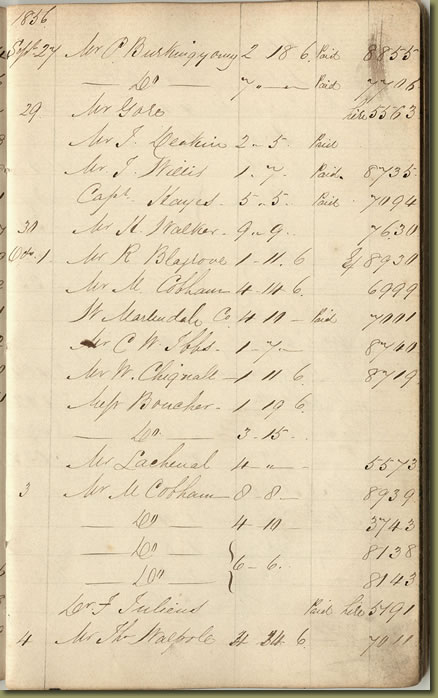 1856
Septr 27 Mr C. Burkingyoung 2 18 6 Paid 8855
— Do — 7 " — Paid 7706
29 Mr Gore hire 5563
Mr J. Deakin 2 - 5 - Paid
Mr J. Willis 1 - 7 - Paid 8735
Captn Hayes 5 - 5 - Paid 7094
30 Mr H. Walker 9 - 9 - 7630
Octr 1 Mr R Blagrove 1 - 11 - 6 8930
Mr M. Cobham 4 - 14 - 6 6999
W Martendale Co 4 10 - Paid 7001
Mr C W Ibbs - 1 - 7 - 8740
Mr W. Chignall - 1 11 6 8719
Messr Boucher - 1 19 6
— Do — 3 - 15 -
Mr Lachenal 4 - " - 5573
3 Mr M Cobham 8 - 8 - 8939
— Do — 4 - 10 - 3743
— Do — 8138
— Do — } 6 - 6 - 8143
Dr F Juliens Paid hire 5191
4 Mr Thos Walpole 14 6 7011